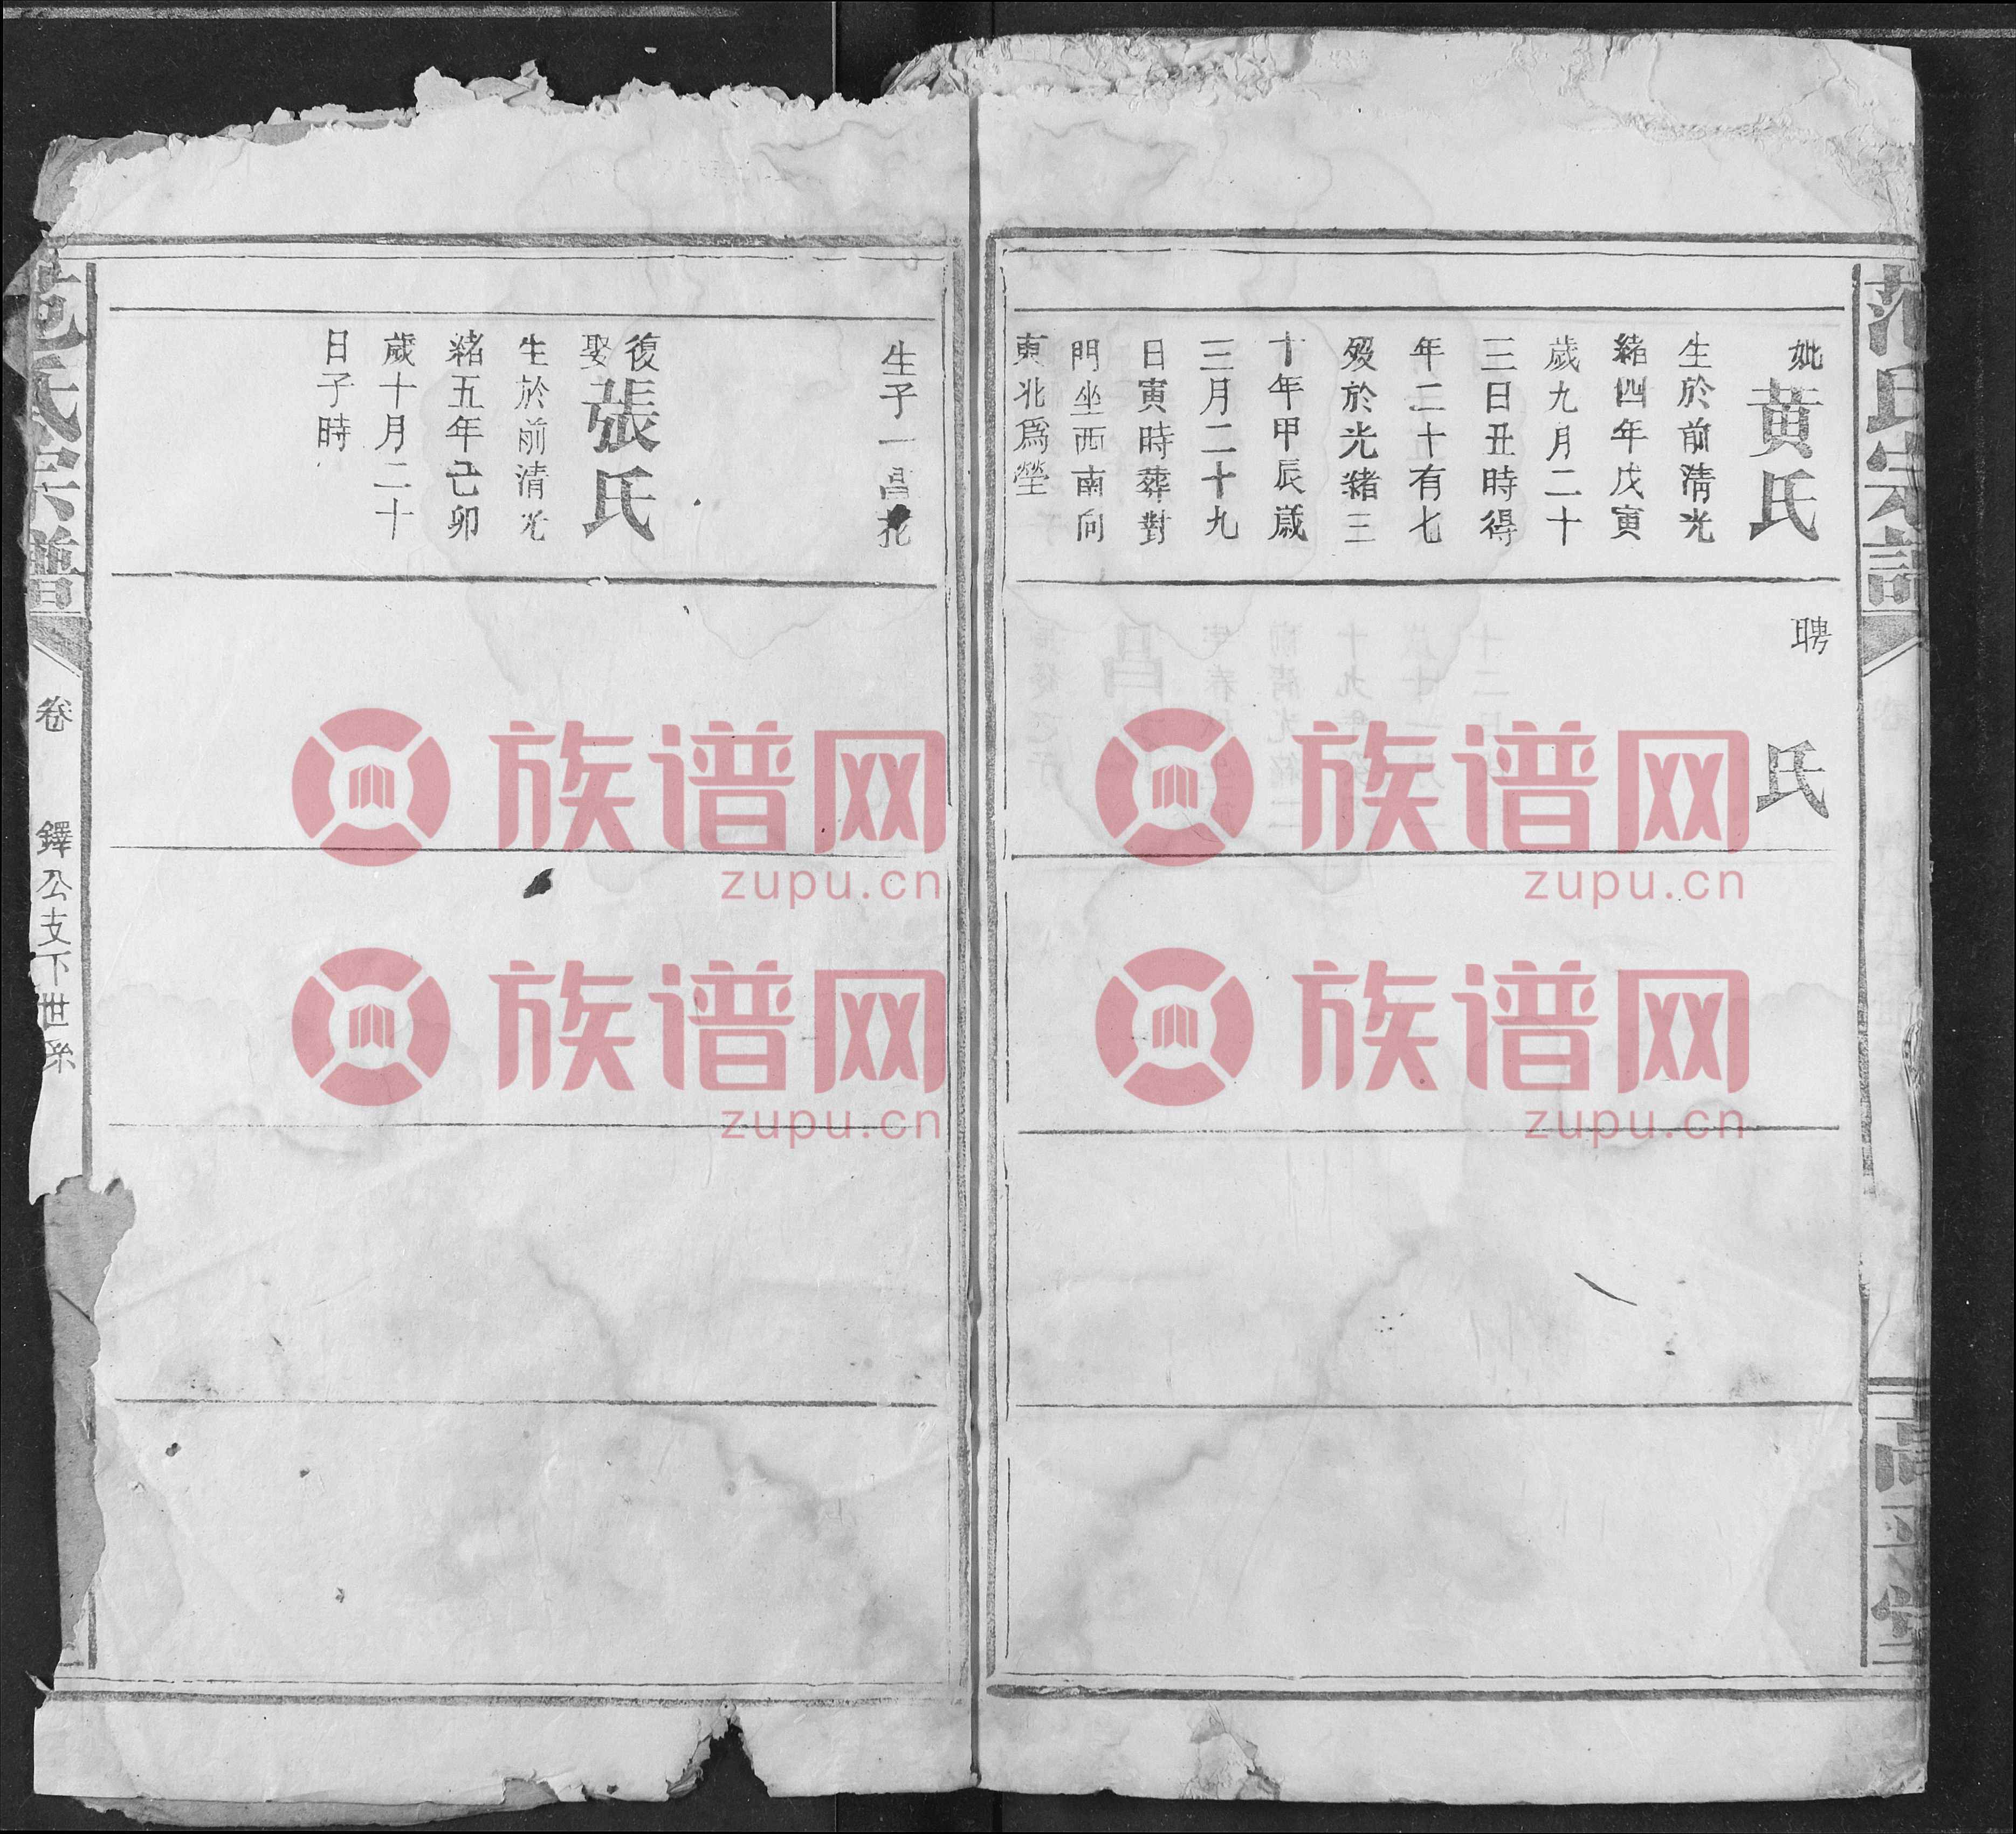 范氏宗譜
高平堂
妣黃氏
生於前淸光
緒四年戊寅
歲九月二十
三日丑時得
年二十有七
歿於光緒三
十年甲辰歲
三月二十九
日寅時葬對
門坐西南向
東北爲塋
聘 氏
生子一昌
復娶張氏
生於前清光
緒五年己卯
歲十月二十
日子時
范氏宗譜
卷
鐸公支下世系
族谱网
zupu.cn
族谱网
zupu.cn
族谱网
zupu.cn
族谱网
zupu.cn